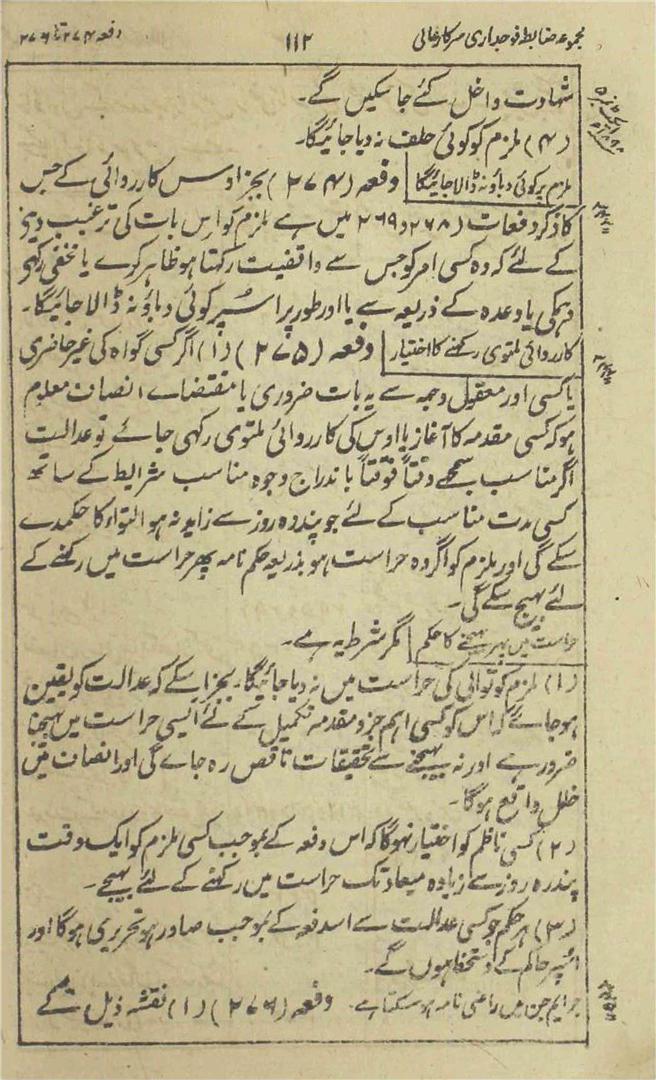 مجموعہ ضابطہ فوجداری سرکارعالی
۱۱۲
دفعہ ۲۷۴ تا ۲۷۶
شہادت داخل کئے جاسکیں گے۔
(۴) ملزم کو کوئی حلف نہ دیا جائیگا۔
ملزم پر کوئی دباؤ نہ ڈالا جائیگا
دفعہ (۲۷۴) بجز اوس کارروائی کے جس
کا ذکر دفعات (۲۶۸ و ۲۶۹ میں ہے ملزم کو اس بات کی ترغیب دینے
کے لئے کہ وہ کسی امر کو جس سے واقفیت رکھتا ہو ظاہر کرے یا مخفی رکہے
دہمکی یا وعدہ کے ذریعہ سے یا اور طور پر اسپر کوئی دباؤ نہ ڈالا جائیگا۔
کارروائی ملتوی رکہنے کا اختیار
دفعہ (۲۷۵) (۱) اگر کسی گواہ کی غیر حاضری
یا کسی اور معقول وجہ سے یہ بات ضروری یا مقتضاے انصاف معلوم
ہو کہ کسی مقدمہ کا آغاز یا اوس کی کارروائی ملتوی رکہی جائے تو عدالت
اگر مناسب سمجھے وقتاً فوقتاً باندراج وجوہ مناسب شرایط کے ساتھ
کسی مدت مناسب کے لئے جو پندرہ روز سے زاید نہ ہو التواء کا حکم دے
سکے گی اور ملزم کو اگر وہ حراست ہو بذریعہ حکم نامہ پھر حراست میں رکہنے کے
لئے بہیج سکے گی۔
حراست میں پہر بہیجنے کا حکم
مگر شرط یہ ہے۔
(۱) ملزم کوتوالی کی حراست میں نہ دیا جائیگا۔ بجز اسکے کہ عدالت کو یقین
ہو جائے کہ اس کو کسی اہم جزو مقدمہ تکمیل کے لئے ایسی حراست میں بہیجنا
ضرور ہے اور نہ بہیجنے سے تحقیقات ناقص رہ جاے گی اور انصاف میں
خلل واقع ہوگا۔
(۲) کسی ناظم کو اختیار نہوگا کہ اس دفعہ کے بموجب کسی ملزم کو ایک وقت
پندرہ روز سے زیادہ میعاد تک حراست میں رکہنے کے لئے بہیجے۔
(۳) ہر حکم جو کسی عدالت سے اسدفعہ کے بموجب صادر ہو تحریری ہوگا اور
اسپر حاکم کے دستخط ہوں گے۔
جرایم جن میں راضی نامہ ہو سکتا ہے۔
دفعہ (۲۷۶) (۱) نقشہ ذیل کے